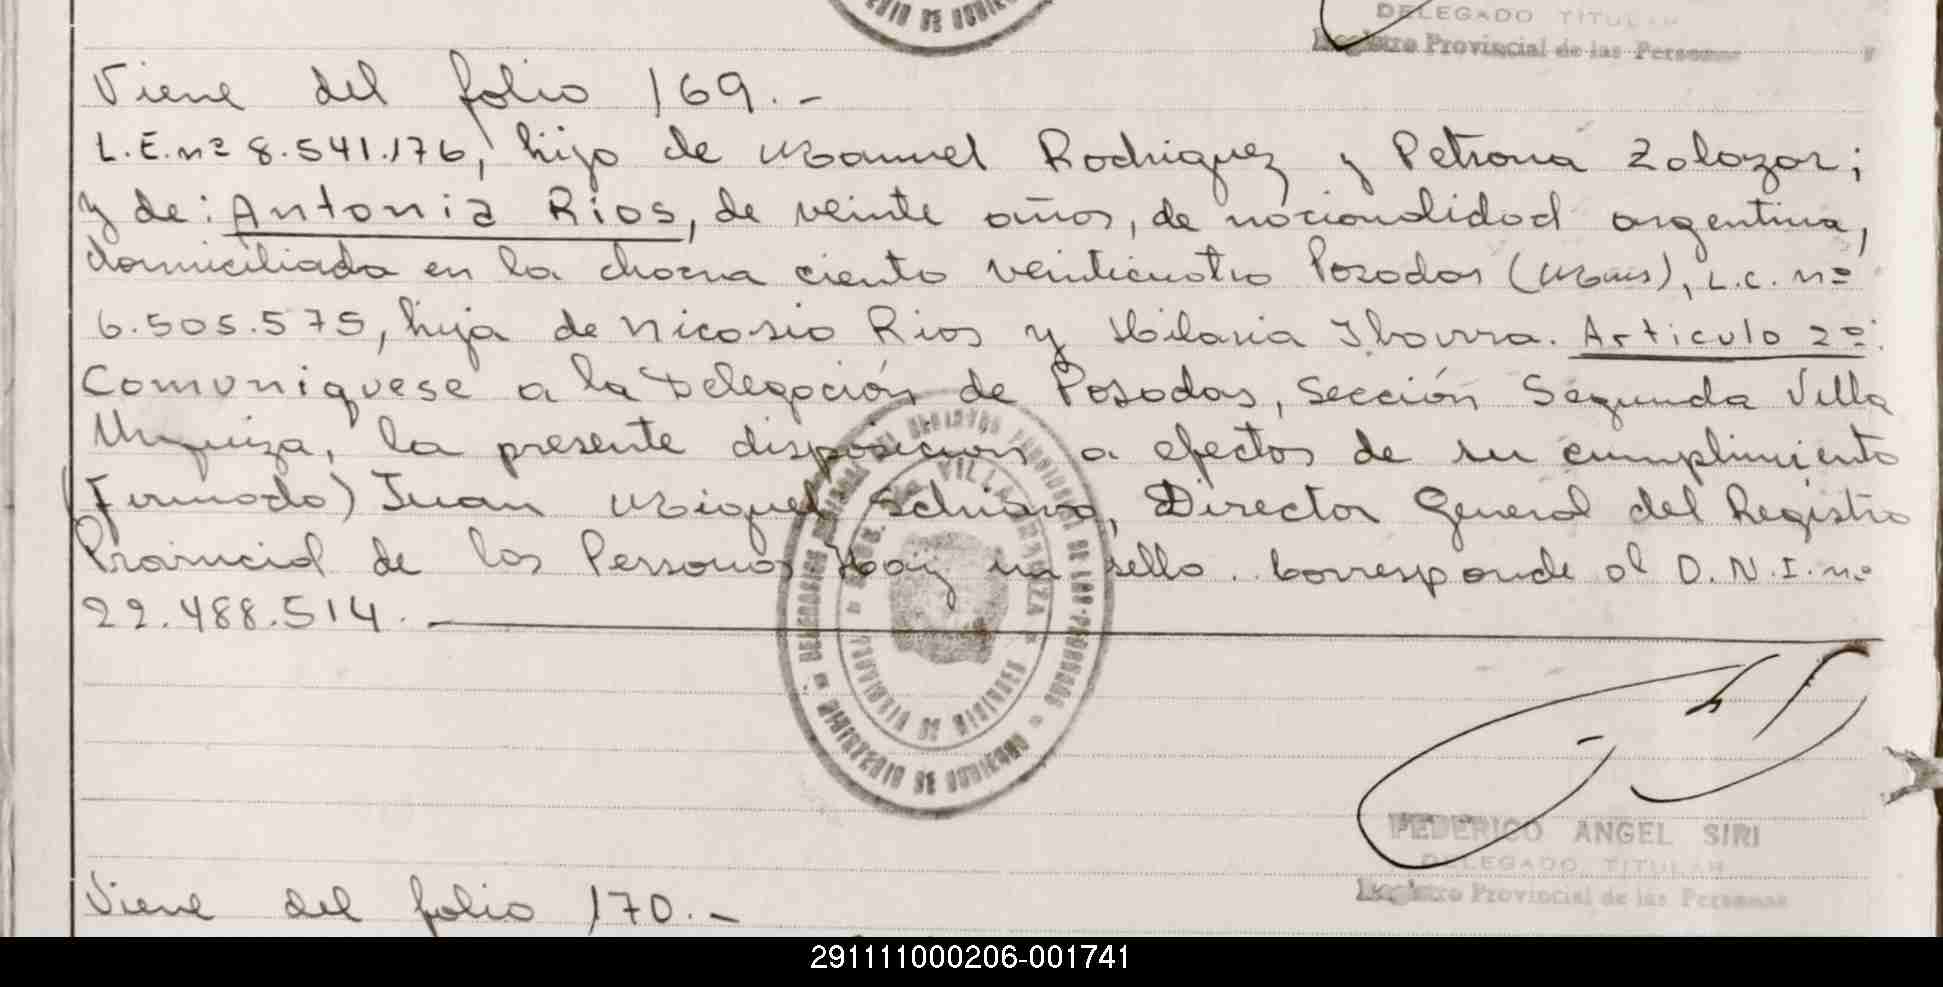 DELEGADO TITULAR
Registro Provincial de las Personas
Viene del folio 169.-
L.E.nº 8.541.176, hijo de Manuel Rodriguez y Petrona Zalazar;
y de: Antonia Rios, de veinte años, de nacionalidad argentina,
domiciliada en la chacra ciento veinticuatro Posadas (Mnes), L.C. nº
6.505.575, hija de Nicasio Rios y Hilaria Ibarra. Articulo 2º:
Comuniquese a la Delegación de Posadas, Sección Segunda Villa
Urquiza, la presente disposicion a efectos de su cumplimiento
(Firmado) Juan Miguel Schiavo, Director General del Registro
Provincial de las Personas Hay un sello. Corresponde al D.N.I. nº
22.488.514.
FEDERICO ANGEL SIRI
DELEGADO TITULAR
Registro Provincial de las Personas
Viene del folio 170.-
291111000206-001741